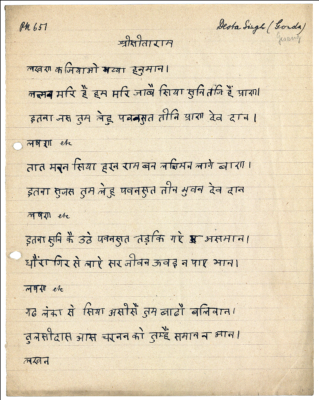 PK 651
Deota Singh (Gonda)
श्रीसीताराम
लखण क जियाओ भय्या हनुमान।
लखन मरि है हम मरि जाब्बै सिया सुनि तजि हैं प्राण।
इतना जस तुम लेहु पवनसुत तीनि प्राण देव दान।
लषण etc
तात मरन सिया हरन राम बन लछिमन लागे बाण।
इतना सुजस तुम लेहु पवनसुत तीन भुवन देव दान
लषण etc
इतना सुनि कै उठे पवनसुत तड़कि गहे असमान।
धौरागिर से लाये सरजीवन ऊवइ न पाए भान।
लषण etc
गढ लंका से सिया असीसैं तुम बाढौ बलिवान।
तुलसीदास आस चरनन को तुम्हैं समान न आन।
लखन